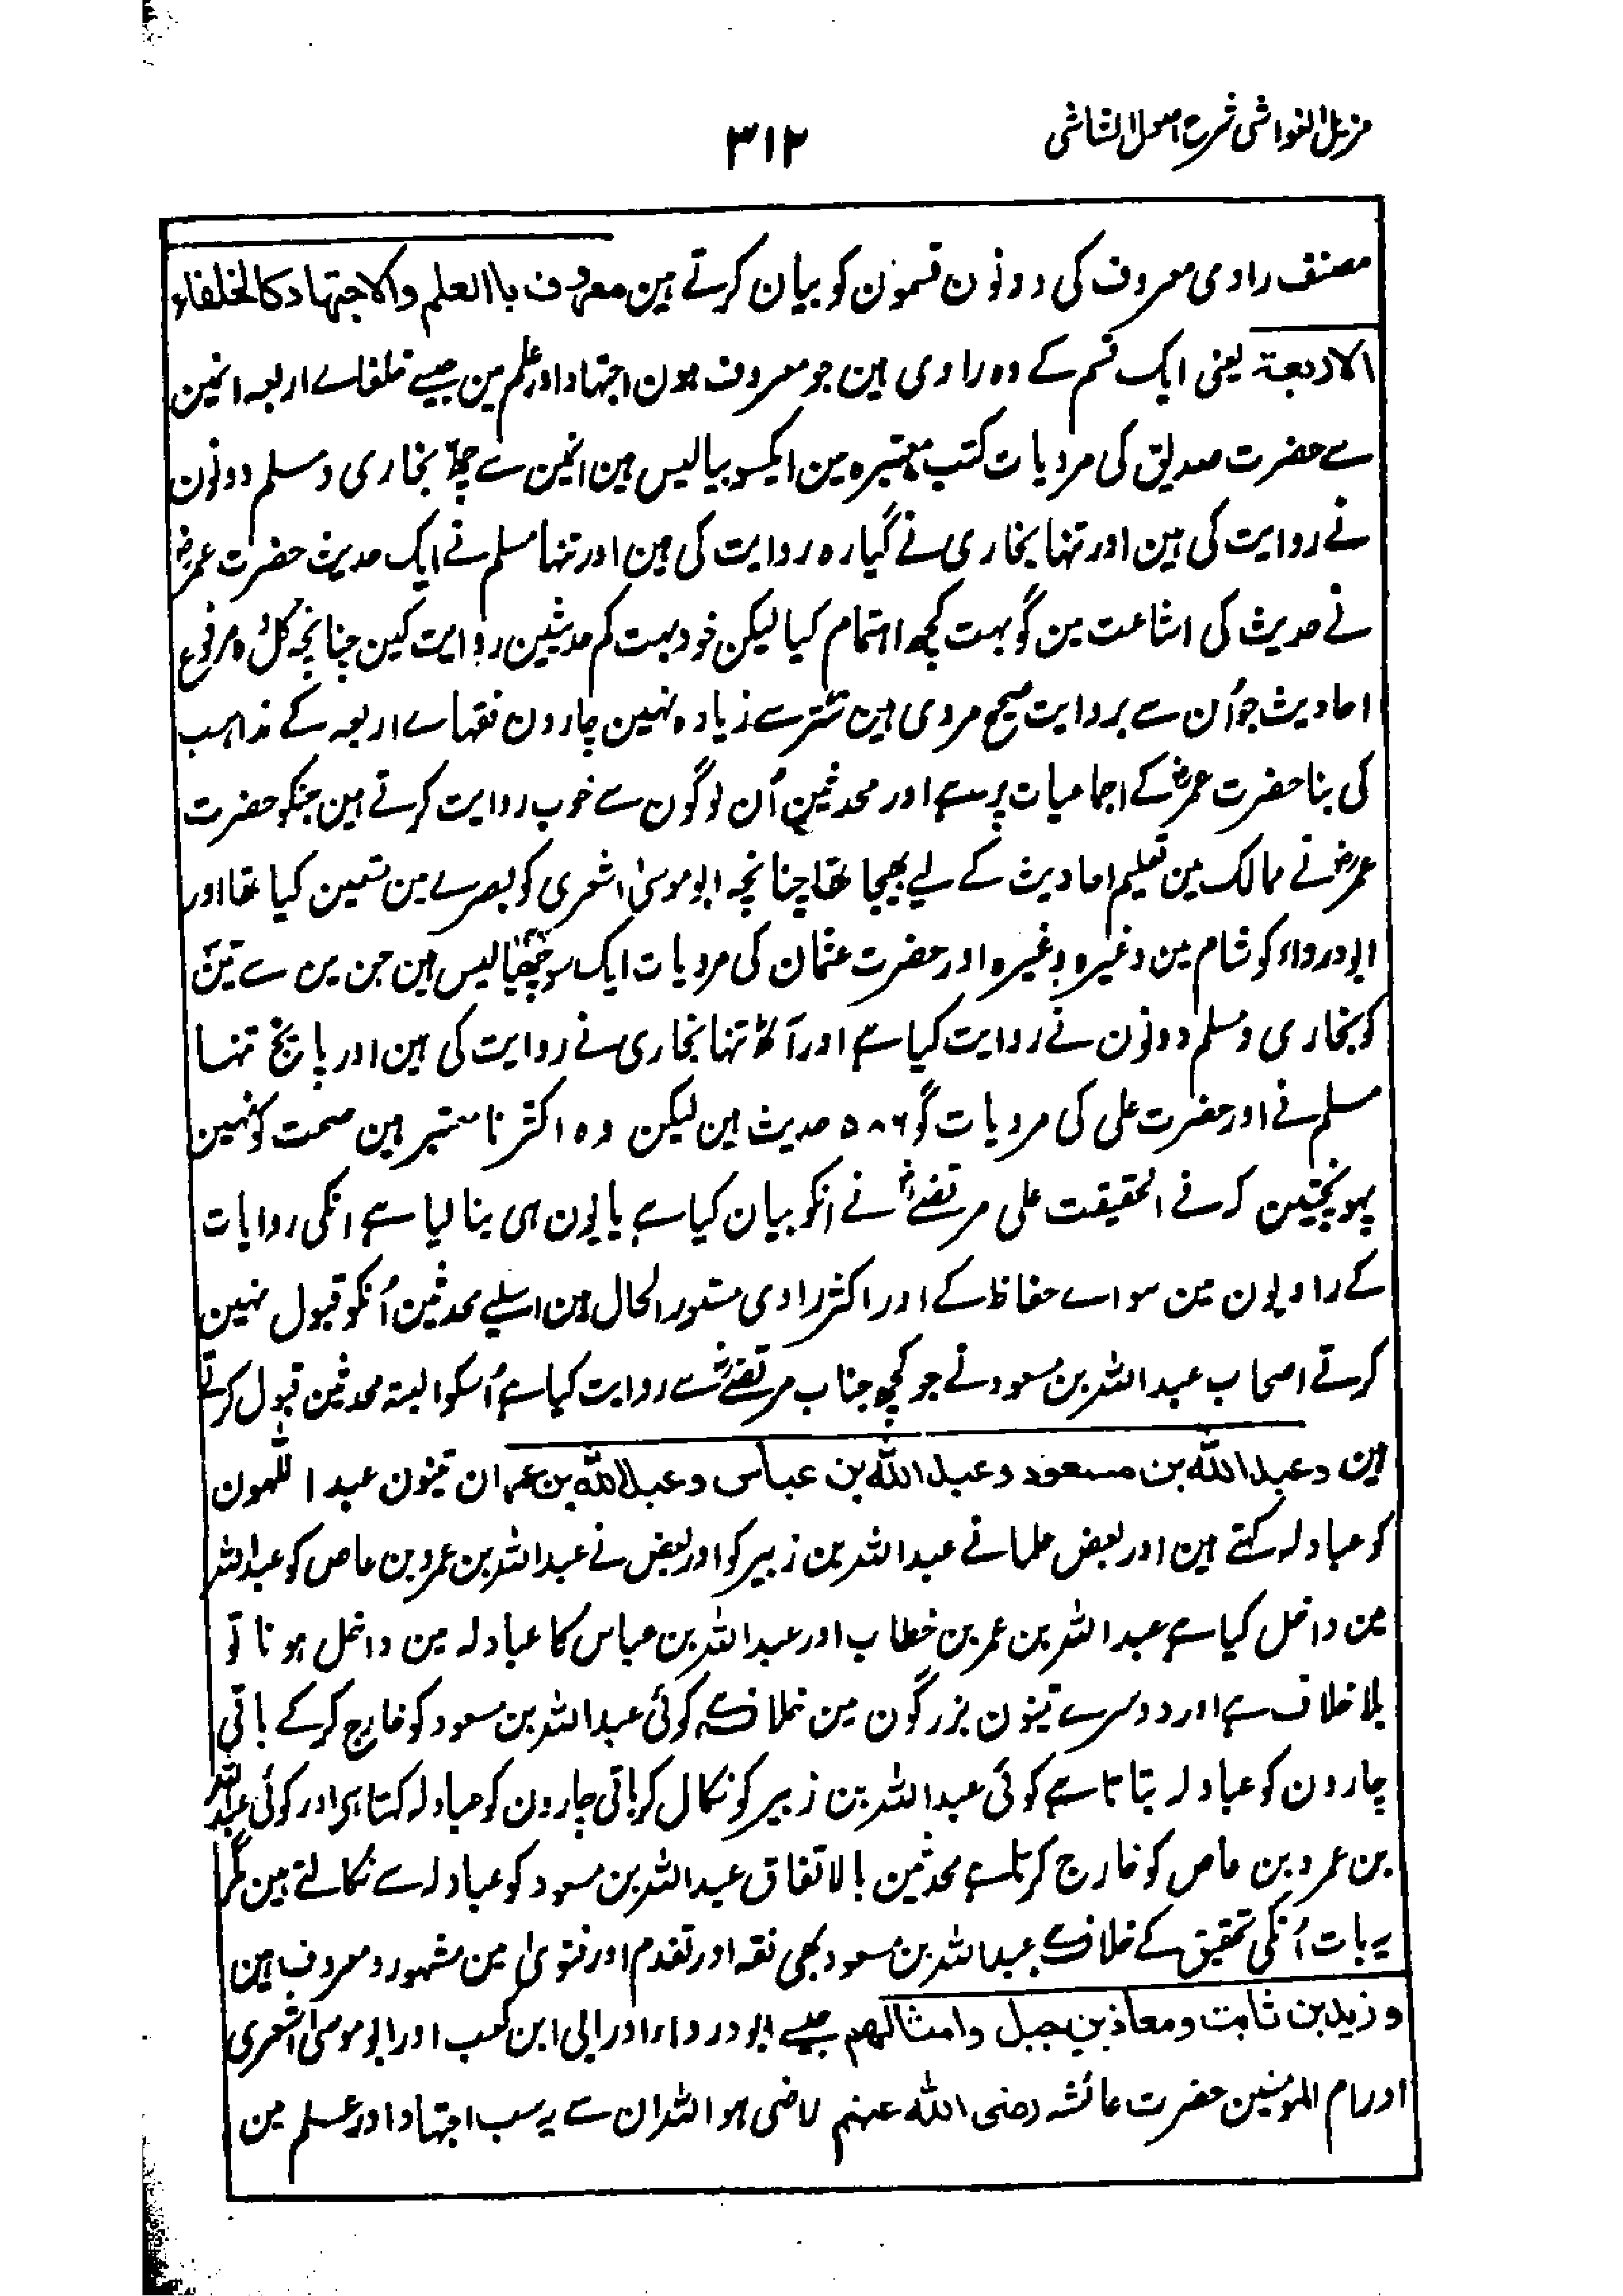 مزیل الغواشی شرح اصول الشاشی
۳۱۲
مصنف راوی معروف کی دونون قسمون کو بیان کرتے ہین معروف باالعلم والاجتہاد کالخلفاء
الاربعۃ یعنی ایک قسم کے وہ راوی ہین جو معروف ہون اجتہاد اور علم مین جیسے خلفاے اربعہ انمین
سے حضرت صدیق کی مرویات کتب معتبرہ مین ایکسو بیالیس ہین انمین سے چھ بخاری و مسلم دونون
نے روایت کی ہین اور تنہا بخاری نے گیارہ روایت کی ہین اور تنہا مسلم نے ایک حدیث حضرت عمرؓ
نے حدیث کی اشاعت مین گو بہت کچھ اہتمام کیا لیکن خود بہت کم حدیثین روایت کین چنانچہ کل وہ مرفوع
احادیث جو اُن سے بروایت صحیح مروی ہین ستر سے زیادہ نہین چارون فقہاے اربعہ کے مذاہب
کی بنا حضرت عمرؓ کے اجماعیات پر ہے اور محدثین اُن لوگون سے خوب روایت کرتے ہین جنکو حضرت
عمرؓ نے ممالک مین تعلیم احادیث کے لیے بھیجا تھا چنانچہ ابو موسیٰ اشعری کو بصرے مین متعین کیا تھا اور
ابودرداء کو شام مین وغیرہ وغیرہ اور حضرت عثمان کی مرویات ایک سو چھیالیس ہین جن مین سے تین
کو بخاری و مسلم دونون نے روایت کیا ہے اور آٹھ تنہا بخاری نے روایت کی ہین اور پانچ تنہا
مسلم نے اور حضرت علی کی مرویات گو ۵۸۶ حدیث ہین لیکن وہ اکثر نامعتبر ہین صحت کو نہین
پہونچتین کہ فے الحقیقت علی مرتضےٰؓ نے انکو بیان کیا ہے یا یون ہی بنا لیا ہے انکی روایات
کے راویون مین سواے حفاظ کے اور اکثر راوی مستور الحال ہین اسلیے محدثین اُنکو قبول نہین
کرتے اصحاب عبد اللہ بن مسعود نے جو کچھ جناب مرتضےٰؓ سے روایت کیا ہے اُسکو البتہ محدثین قبول کرتے
ہین وعبد اللہ بن مسعود وعبد اللہ بن عباس وعبد اللہ بن عمر ان تینون عبد اللہون
کو عبادلہ کہتے ہین اور بعض علما نے عبد اللہ بن زبیر کو اور بعض نے عبد اللہ بن عمرو بن عاص کو عبد اللہ
مین داخل کیا ہے عبد اللہ بن عمر بن خطاب اور عبد اللہ بن عباس کا عبادلہ مین داخل ہونا تو
بلا خلاف ہے اور دوسرے تینون بزرگون مین خلاف ہے کوئی عبد اللہ بن مسعود کو خارج کرکے باقی
چارون کو عبادلہ بتاتا ہے کوئی عبد اللہ بن زبیر کو نکال کر باقی چارون کو عبادلہ کہتا ہے اور کوئی عبد اللہ
بن عمرو بن عاص کو خارج کرتا ہے محدثین بالاتفاق عبد اللہ بن مسعود کو عبادلہ سے نکالتے ہین مگر
یہ بات اُنکی تحقیق کے خلاف ہے عبد اللہ بن مسعود بھی فقہ اور تقدم اور فتویٰ مین مشہور و معروف ہین
وزید بن ثابت ومعاذ بن جبل وامثالہم جیسے ابودرداء اور ابی ابن کعب اور ابو موسیٰ اشعری
اور ام المومنین حضرت عائشہ رضی اللہ عنہم راضی ہو اللہ ان سے یہ سب اجتہاد اور علم مین